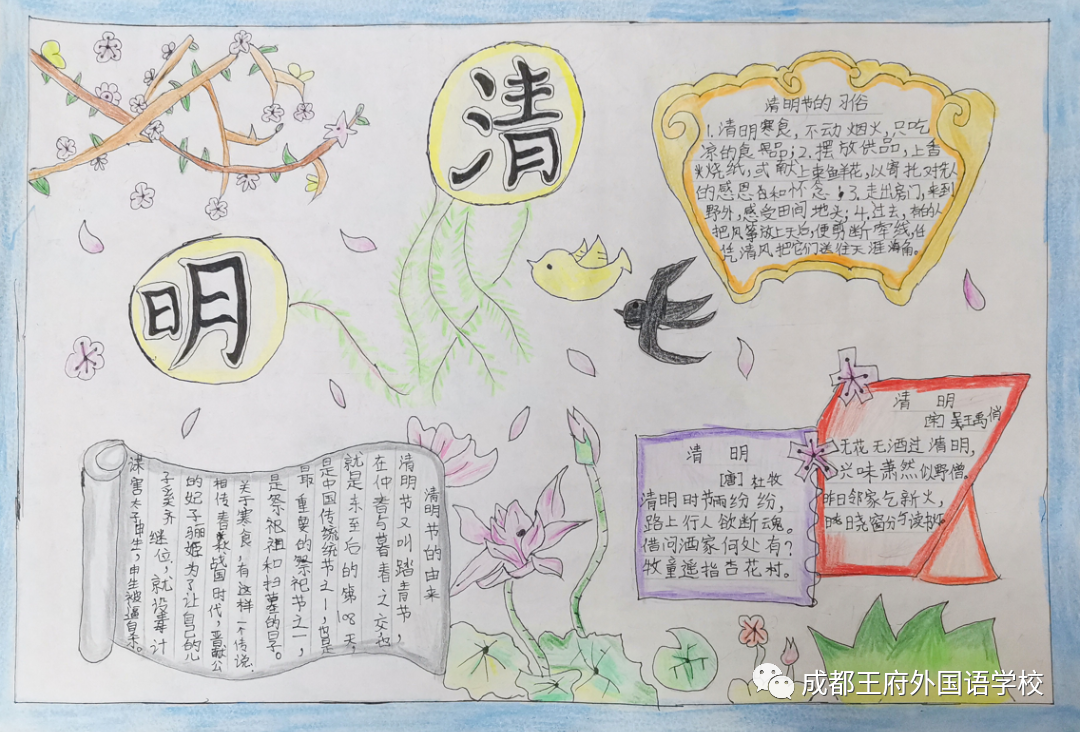 清
明
清明节的习俗
1.清明寒食，不动烟火，只吃
凉的食品；2.摆放供品，上香
火烧纸，或献上束鲜花，以寄托对先人
的感恩和怀念；3.走出房门，来到
野外，感受田间地头；4.过去，有的人
把风筝放上天后，便剪断牵线，任
凭清风把它们送往天涯海角。
清明节的由来
清明节又叫踏青节，
在仲春与暮春之交，也
就是冬至后的第108天，
是中国传统节日之一，也是
最重要的祭祀节之一，
是祭祖和扫墓的日子。
关于寒食，有这样一个传说
相传春秋战国时代，晋献公
的妃子骊姬为了让自己的儿
子奚齐继位，就设毒计
谋害太子申生，申生被逼自杀。
清 明
[唐] 杜牧
清明时节雨纷纷，
路上行人欲断魂。
借问酒家何处有？
牧童遥指杏花村。
清 明
[宋] 吴王禹俏
无花无酒过清明，
兴味萧然似野僧。
昨日邻家乞新火，
晓窗分与读书灯
成都王府外国语学校